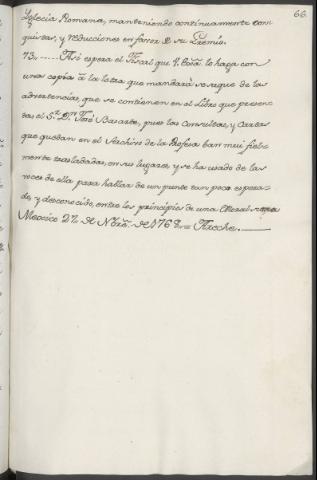 66.
Iglecia Romana, manteniendo continuamente con-
quistas, y reducciones en favor de su Gremio.
73.......Asi espera el Fiscal que V. Exâ. lo haga con
una copia â la letra que mandarâ se saque de las
advertencias, que se contienen en el Libro que presen-
ta el S.r D.n Josê Basarte, pues las Consultas, y Cartas
que quedan en el Archivo de la Profesa ban mui fiel-
mente trasladadas, en sus lugares, y se ha usado de las
voces de ella para hablar de un punto tan poco espera-
do, y desconocido, entre los principios de una Moral
Mexico 27. de Nbrê. de 1768.= Areche.